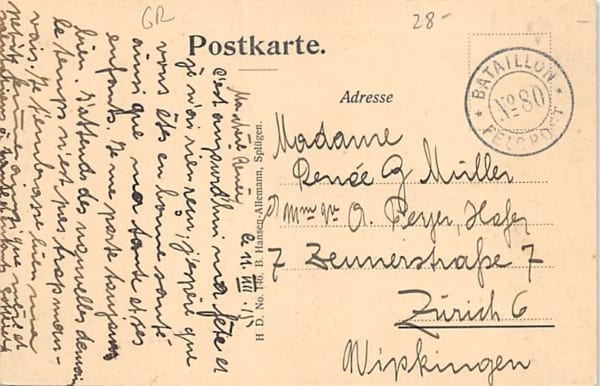 GR
28-
Postkarte.
Adresse
BATAILLON
No 80
FELDPOST
Madame
Renée G Müller
Mme
A.
Hofer
7 Zeunerstraße 7
Zürich 6
Wipkingen
H D. No. 146. B. Hansen-Allemann, Splügen.
le 11. VIII.
c'est aujourd'hui ma fête et
je n'ai rien reçu, j'espère que
vous êtes en bonne santé
ainsi que ma tante et ses
enfants. Je me porte toujours
bien. J'attends des nouvelles demain
le temps n'est pas trop mau-
vais. Je t'embrasse bien ma
petite